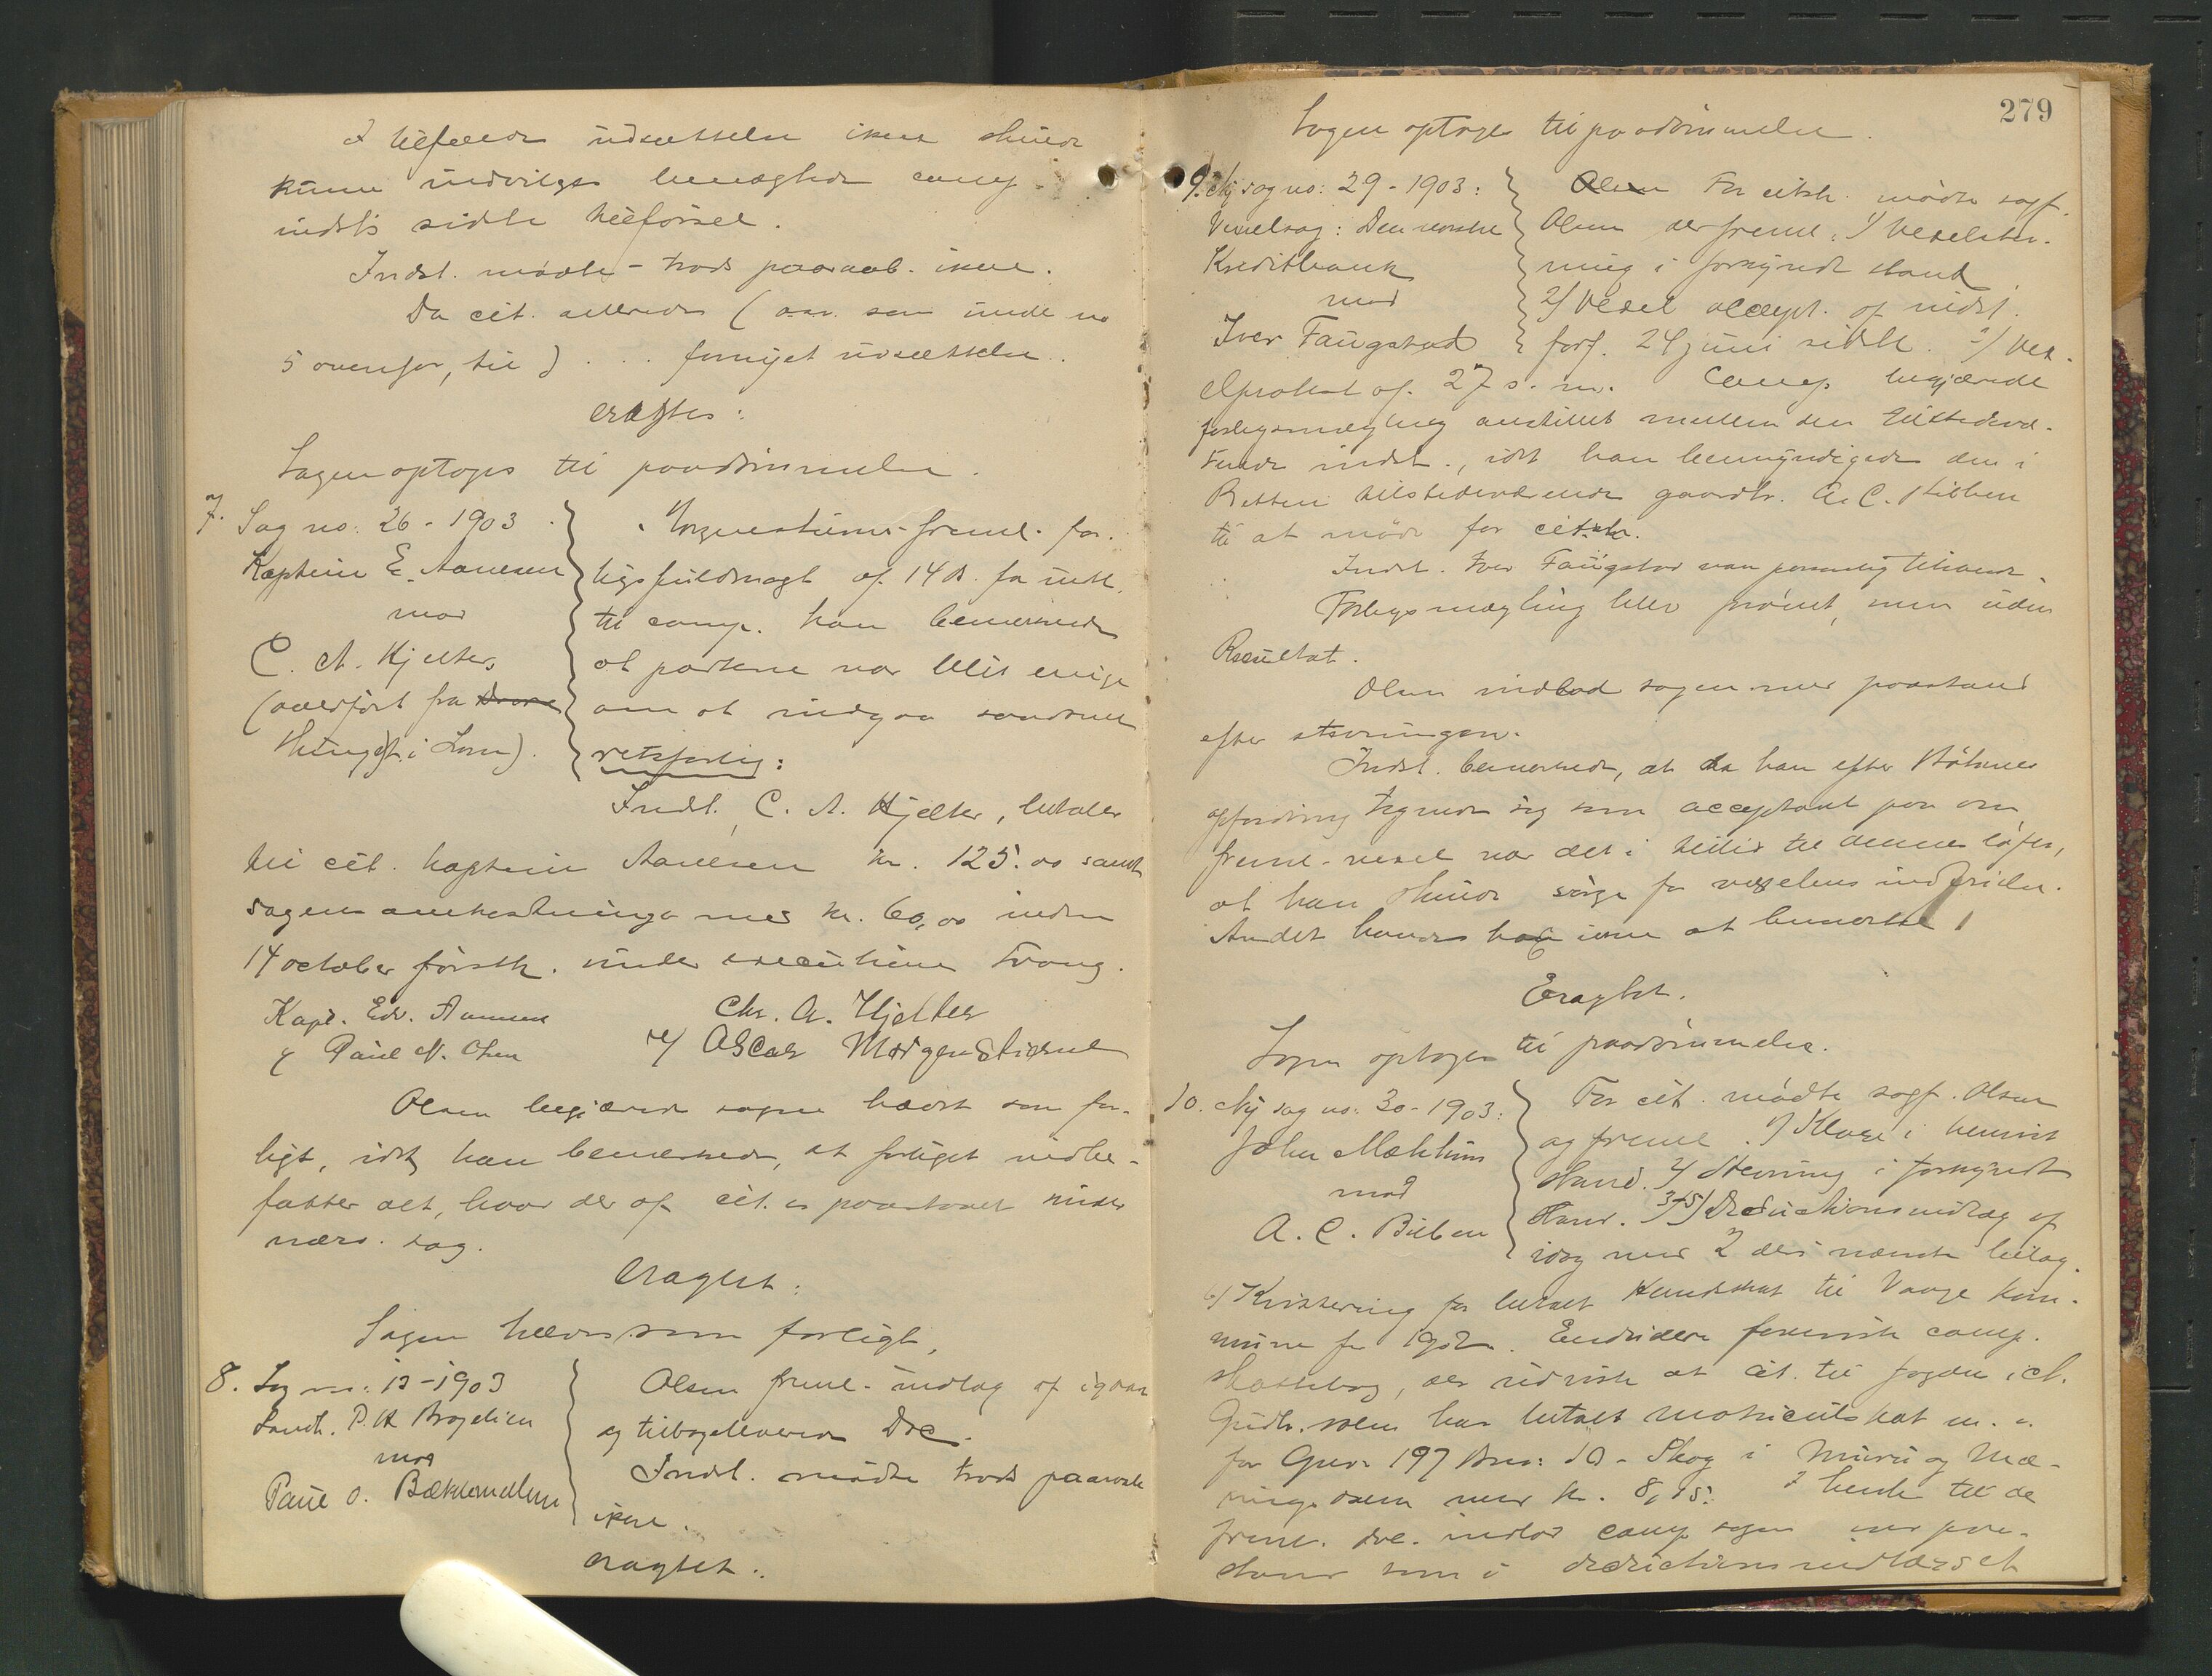 I tilfælde udsættelse ikke skulde
kunne indvilges benægtede comp.
indst's sidste tilførsel.
Indst. mødte - trods paaraab - ikke.
Da cit. allerede ( ... som under no
5 ovenfor, til ) . . . fornyet udsættelse.
eragtes:
Sagen optages til paadømmelse.
7. Sag no: 26 - 1903.
Kaptein E. Aanesen
mod
C. A. Hjelter,
(overført fra
thinget i Lom).
Morgenstierne freml. for-
ligsfuldmagt af 14 ds. fra indst.
til comp. Han bemærkede
at parterne var blit enige
om at indgaa saadant
retsforlig:
Indst. C. A. Hjelter, betaler
til cit. kaptein Aanesen kr. 125.00 samt
sagens omkostninger med kr. 60,00 inden
14 october førstk. under executions tvang.
Kapt. Edv. Aanesen
v/ Paul N. Olsen
Chr. A. Hjelter
v/ Oscar Morgenstierne
Olsen begjærede sagen hævet som for-
ligt, idet han bemærkede, at forliget indbe-
fatter alt, hvad der af cit. er paastaaet under
nærv. sag.
Eragtet:
Sagen hæves som forligt,
8. Sag no: 13 - 1903
Landh. P. H. Brogelien
mod
Paul O. Bækkemellem
Olsen freml. indlæg af igaar
og tilbageleverede Doc.
Indst. mødte trods paaraab
ikke.
Eragtet:
279
Sagen optages til paadømmelse.
9. Ny sag no: 29 - 1903:
Vexelsag: Den norske
Kreditbank
mod
Iver Faugstad
For citsk. mødte sagf.
Olsen der freml. 1) Vexelstev-
ning i forkyndt stand
2) Vexel accept. af indst.
forf. 24 juni sidstl. 3) Vex-
elprotest af 27 s. m. Comp. begjærede
forligsmægling anstillet mellem den tilstedevæ-
rende indst., idet han bemyndigede den i
Retten tilstedeværende gaardbr. A. C. Bilben
til at møde for citsk.
Indst. Iver Faugstad var personlig tilstede.
Forligsmægling blev prøvet, men uden
Resultat.
Olsen indlod sagen med paastand
efter stevningen.
Indst. bemærkede, at da han efter Bøhmes
opfordring tegnede sig som acceptant paa om
freml. vexel var det i tillid til dennes løfte,
at han skulde sørge for vexelens indfrielse.
Andet havde han ikke at bemærke.
Eragtet.
Sagen optages til paadømmelse.
10. Ny sag no: 30 - 1903:
John Mæhlum
mod
A. C. Bilben
For cit. mødte sagf. Olsen
og freml. 1) Klage i henvist
stand. 2) Stevning i forkyndt
stand. 3-5) Deductionsindlæg af
idag med 2 deri nævnte bilag.
6) Kvittering for betalt Hundeskat til Vaage kom-
mune for 1902. Endvidere foreviste comp.
skattebog, der udviste at cit. til fogden i N.
Gudbr.dalen har betalt matriculskat m. v.
for Gno. 197 Bno: 10 - Skog i Muru og Mæ-
ringsdalen med kr. 8,15. I henh. til de
freml. doc. indlod comp. sagen med paa-
stand som i deductionsindlægget